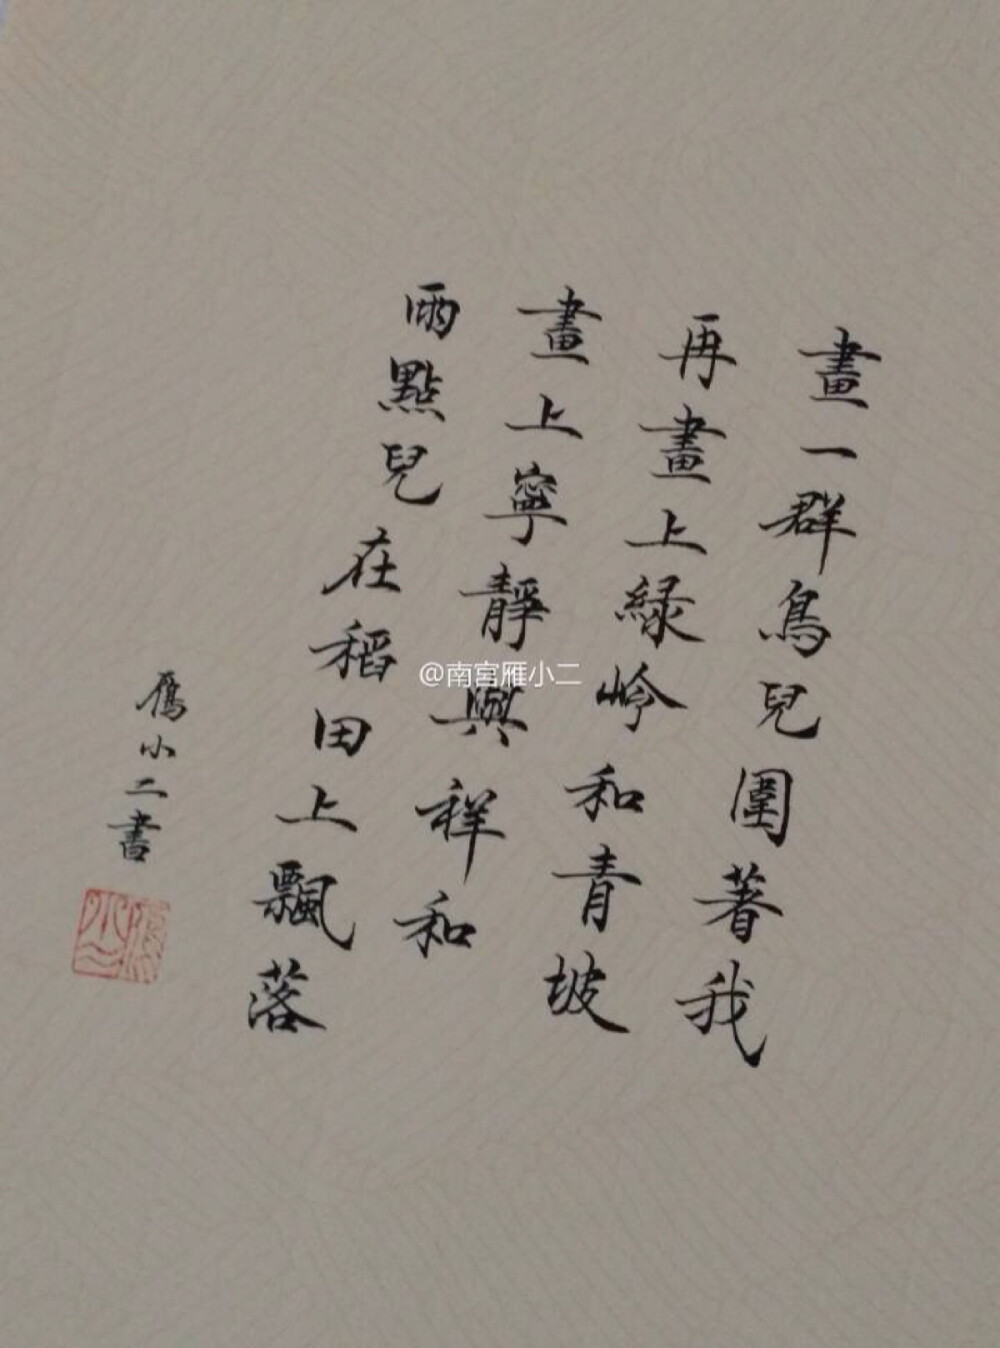 畫一群鳥兒圍著我
再畫上緑岭和青坡
畫上寧靜與祥和
雨點兒在稻田上飄落
雁小二書
雁小二
@南宫雁小二